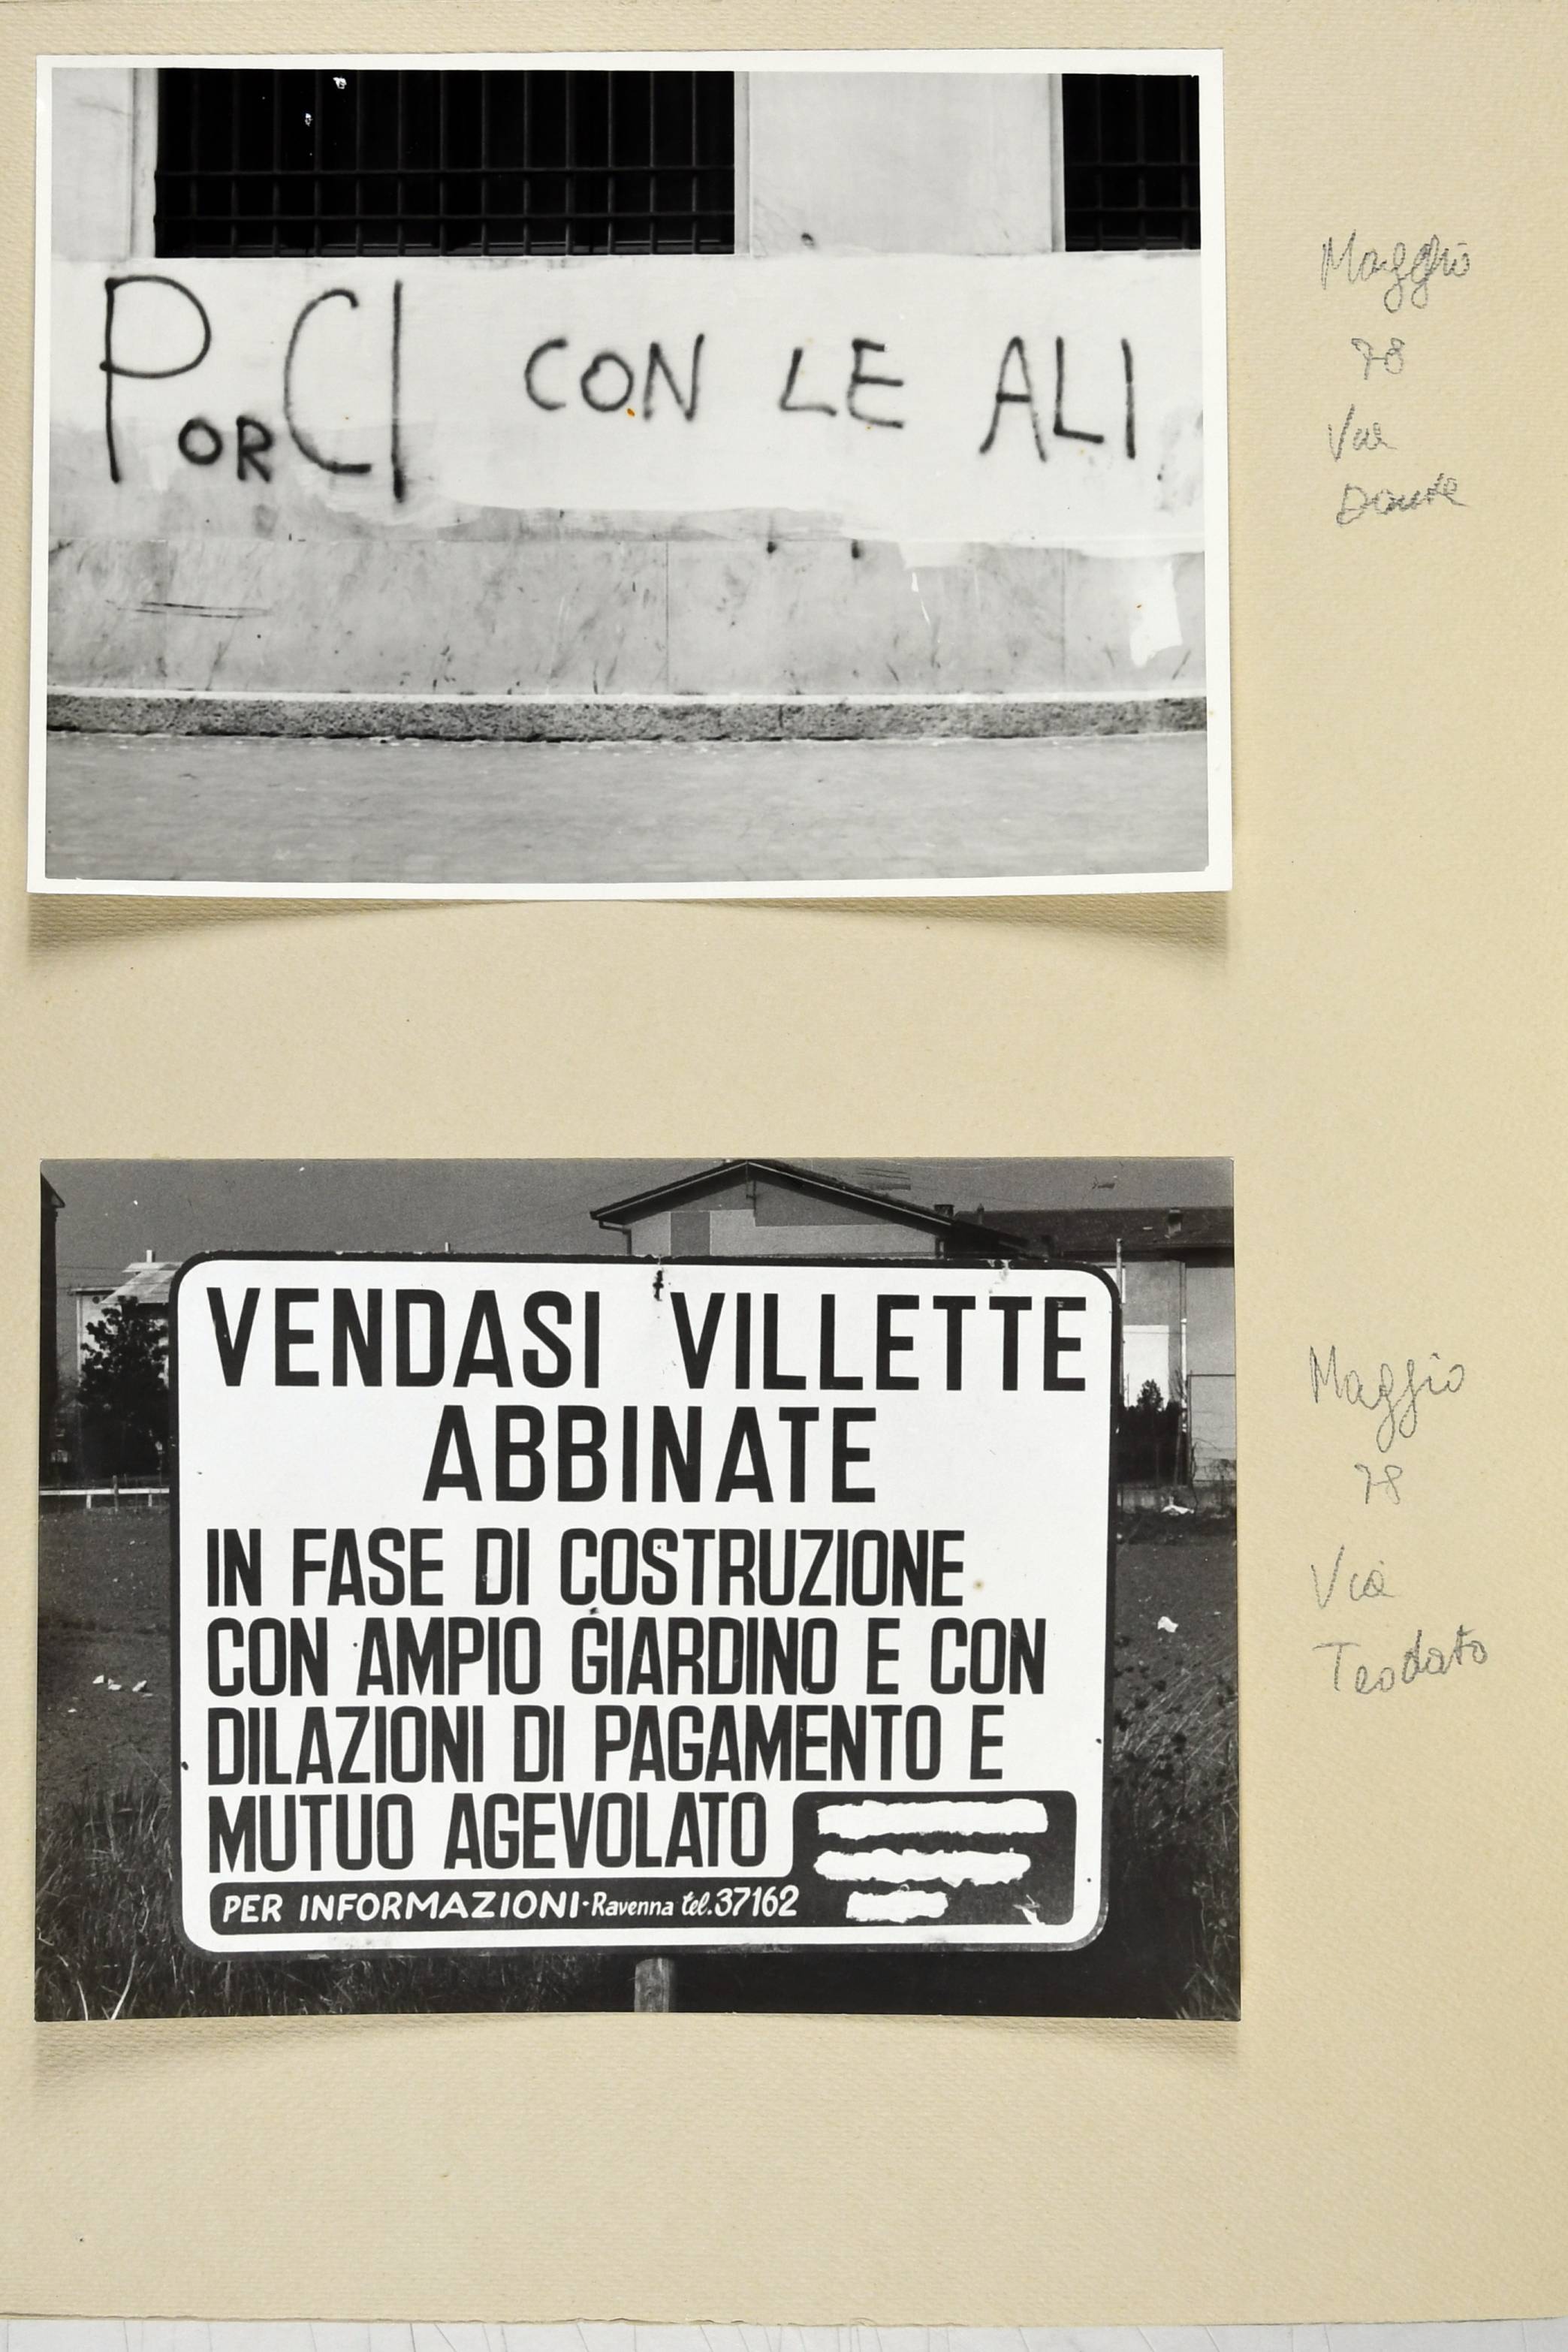 PorCI CON LE ALI
Maggio
78
Via
Dante
VENDASI VILLETTE
ABBINATE
IN FASE DI COSTRUZIONE
CON AMPIO GIARDINO E CON
DILAZIONI DI PAGAMENTO E
MUTUO AGEVOLATO
PER INFORMAZIONI·Ravenna tel.37162
Maggio
78
Via
Teodato